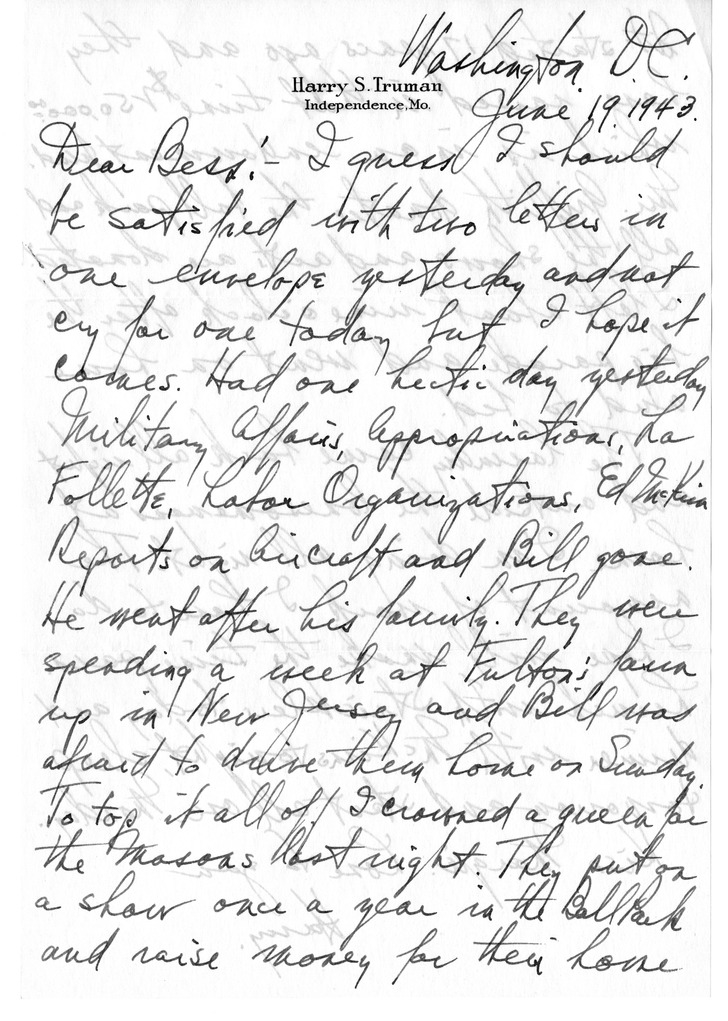 Washington, D.C.
Harry S. Truman
Independence, Mo.
June 19, 1943.
Dear Bess:- I guess I should
be satisfied with two letters in
one envelope yesterday and not
cry for one today but I hope it
comes. Had one hectic day yesterday
Military Affairs, Appropriations, La
Follette, Labor Organizations, Ed McKim
Reports on Aircraft and Bill gone.
He went after his family. They were
spending a week at Fulton's farm
up in New Jersey and Bill was
afraid to drive them home on Sunday.
To top it all off I crowned a queen for
the Masons last night. They put on
a show once a year in the Ball Park
and raise money for their home